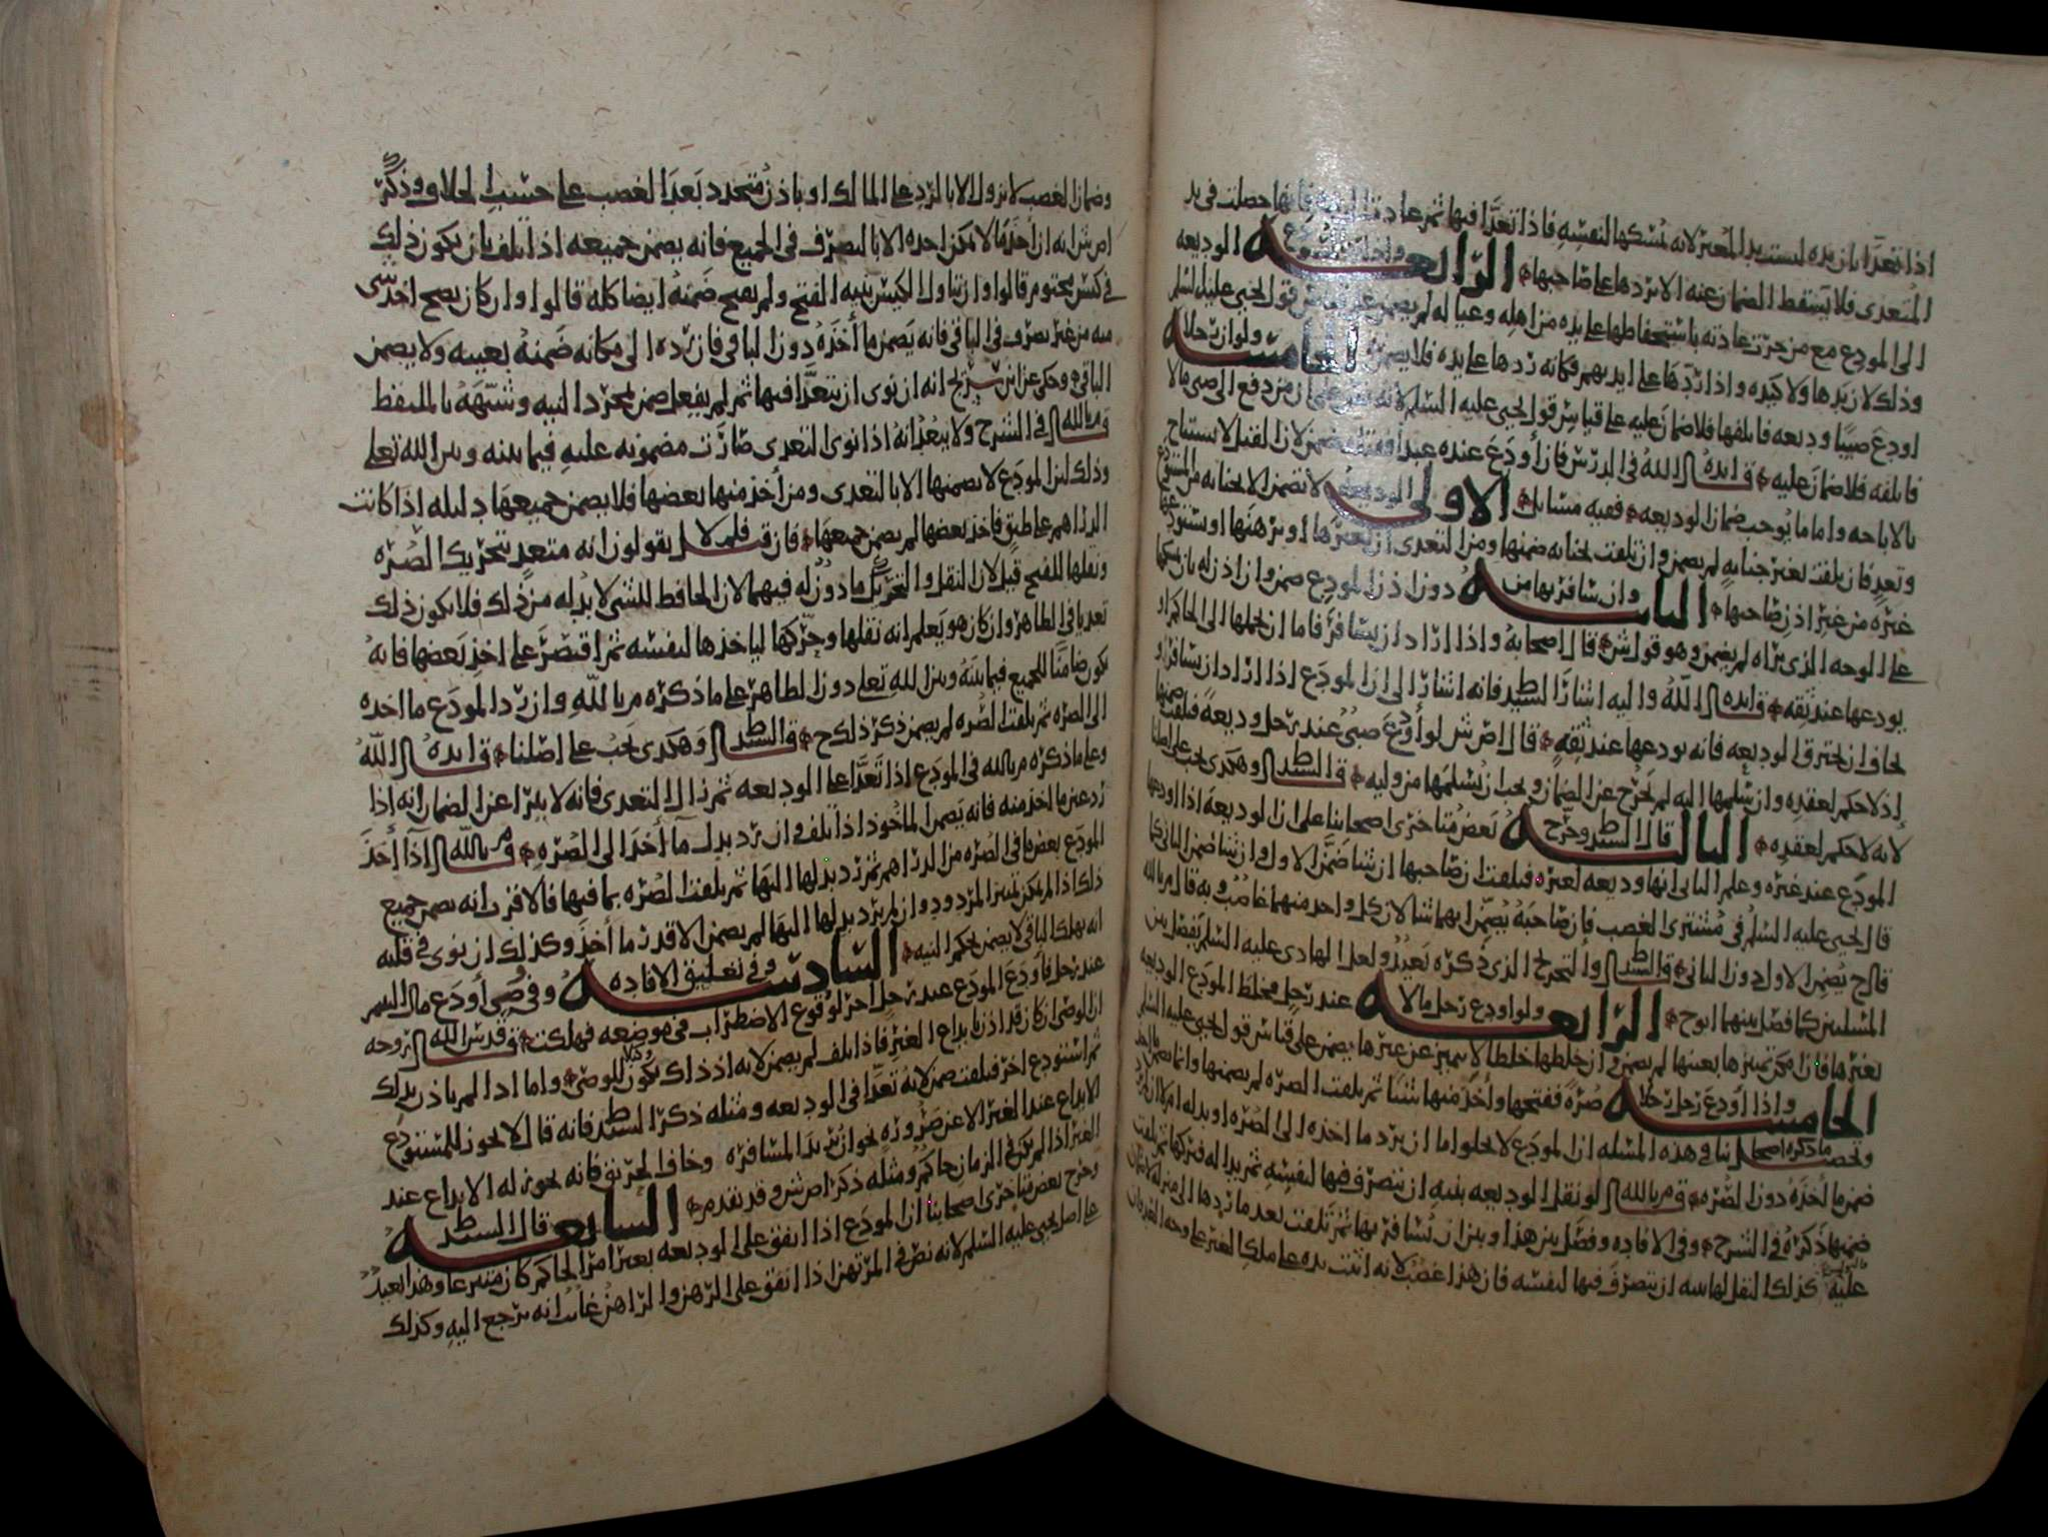 اذا تعدا بان يده ليست يد المعير لانه يمسكها لنفسه فاذا تعدا فيها ثم عاد حصلت في يد
المتعدي فلا يسقط الضمان عنه الا بردها على صاحبها الرابعه واذا الوديعه
الى المودع مع من جرت عادته باستحفاظها على يده من اهله وعياله لم يضمن قول يحيى عليه السلم
وذلك لان يدها ولا كيده واذا ردها على ايديهم فكانه ردها على يده فلا يضمن الخامسه ولو ان رجلا
اودع صبيا وديعه فاتلفها فلا ضمان عليه على قياس قول يحيى عليه السلم لانه ان من دفع الى صبي مالا
فاتلفه فلا ضمان عليه قال ايده الله في الدرس فان أودع عنده عبدا فقتله ضمن لان القتل لا يستباح
بالاباحه واما ما يوجب ضمان الوديعه ففيه مسائل الاولى الوديعه لا تضمن الا لجنايه من المستودع
وتعد فان تلفت بغير جنايه لم يضمن وان تلفت بجنايه ضمنها ومن التعدي ان يعيرها او يرهنها او يستودعها
غيره من غير اذن صاحبها الثانيه وان سافر بها من دون اذن المودع ضمن وان اذن له بان يمسكها
على الوجه الذي يراه لم يضمن وهو قول ش قال اصحابه واذا اراد ان يسافر فاما ان يحملها الى الحاكم او
يودعها عند ثقه قال ايده الله واليه اشار السيد فانه اشار الى ان المودع اذا اراد ان يسافر او
خاف ان تحترق الوديعه فانه يودعها عند ثقه قال اص ش لو أودع صبي عند رجل وديعة فتلفت ضمنها
إذ لا حكم لعقده وان سلمها اليه لم يخرج عن الضمان ويجب ان يسلمها من وليه قال السيد وهكدى يجب على اصلنا
لانه لا حكم لعقده الثالثه قال السيد وخرج بعض متاخري اصحابنا على ان الوديعة اذا اودعها
المودع عند غيره وعلم الثاني انها وديعه لغيره فتلفت ان صاحبها ان شا ضمن الاول وان شا ضمن الثاني كما
قال يحيى عليه السلم في مشتري الغصب فان صاحبه يضمن ايهما شا لان كل واحد منهما غاصب وبه قال م بالله
قال ح يضمن الاول دون الثاني قال السيد والتخريج الذي ذكره بعيد ولعل الهادي عليه السلم يفصل بين
المسلين كما فصل بينهما ابو ح الرابعه ولو اودع رجل مالا عند رجل فخلط المودع الوديعه
بغيرها فان امكن تمييزها بعينها لم يضمن وان خلطها خلطا لا يتميز عن غيرها يضمن على قياس قول يحيى عليه السلم
الخامسه واذا أودع رجل رجلا صرة ففتحها وأخذ منها شيئا ثم تلفت الصره لم يضمنها وانما ضمن ما اخذ
وتحصيل ما ذكره اصحابنا في هذه المسله ان المودع لا يخلوا اما ان يرد ما اخذه الى الصره او بدله ام لا
ضمن ما أخذه دون الصره قال م بالله لو نقل الوديعه بنيه ان يتصرف فيها لنفسه ثم بدا له فتركها ثم تلفت
ضمنها ذكره في الشرح وفي الافاده وفصل بين هذا وبين ان يسافر بها ثم تلفت بعد ما ردها الى منزله
عليه كذلك النقل لها بنيه ان يتصرف فيها لنفسه فان هذا غصب لانه اثبت يده على ملك الغير على وجه العدوان
وضمان الغصب لا يزول الا بالرد على المالك او باذن متجدد بعد الغصب على حسب الخلاف وذكر
اص ش انه ان أخذ ما لا يمكن اخذه الا بالتصرف في الجميع فانه يضمن جميعه اذا تلف بان يكون ذلك
في كيس مختوم قالوا وان تناول الكيس بنيه الفتح ولم يفتح ضمنه ايضا كله قالوا وان كان يصح اخذ شي
منه من غير تصرف في الباقي فانه يضمن ما أخذه دون الباقي فان رده الى مكانه ضمنه بعينه ولا يضمن
الباقي وحكى عن ابن سريج انه ان نوى ان يتعدا فيها ثم لم يفعل ضمن بمجرد النيه وشبهه بالملتقط
قال م بالله في الشرح ولا يبعد انه اذا نوى التعدي صارت مضمونه عليه فيما بينه وبين الله تعلى
وذلك لان المودع لا يضمنها الا بالتعدي ومن أخذ منها بعضها فلا يضمن جميعها دليله اذا كانت
الدراهم على طبق فاخذ بعضها لم يضمن جميعها فان قيل فلم لا يقولون انه متعد بتحريك الصره
ونقلها للفتح قيل لان النقل والتحريك مأذون له فيهما لان الحافظ للشي لا بد له من ذلك فلا يكون ذلك
تعديا في الظاهر وان كان هو يعلم انه نقلها وحركها لياخذها لنفسه ثم اقتصر على اخذ بعضها فانه
يكون ضامنا للجميع فيما بينه وبين الله تعلى دون الظاهر على ما ذكره م بالله وان رد المودع ما اخذه
الى الصره ثم تلفت الصره لم يضمن ذكر ذلك ح قال السيد وهكدى يجب على اصلنا قال ايده الله
وعلى ما ذكره م بالله في المودع اذا تعدا على الوديعه ثم زال التعدي فانه لا يبرا عن الضمان انه اذا
رد عين ما اخذ منه فانه يضمن الماخوذ اذا تلف وان رد بدل ما أخذ الى الصره قال م بالله اذا أخذ
المودع بعض ما في الصره من الدراهم ثم رد بدلها اليها ثم تلفت الصره بما فيها فالاقرب انه يضمن جميع
ذلك اذا لم يمكن تمييز المردود وان لم يرد بدلها اليها لم يضمن الا قدر ما أخذ وكذلك ان نوى في قلبه
انه يهلك الباقي لا يضمن بحكم النيه السادسه وفي تعليق الافاده وفي وصي أودع مال اليتيم
عند رجل فأودع المودع عند رجل اخر لوقوع الاضطراب في موضعه فهلكت قال قدس الله روحه
ان الوصي ان كان قد اذن بايداع الغير فاذا تلف لم يضمن لانه اذ ذاك يكون للوصي واما اذا لم ياذن بذلك
ثم استودع اخر فتلفت ضمن لانه تعدا في الوديعه ومثله ذكر السيد فانه قال لا يجوز للمستودع
الايداع عند الغير الا عن ضروره نحو ان يريد المسافره وخاف الحريق فانه يجوز له الايداع عند
الغير اذا لم يكن في الزمان حاكم ومثله ذكر اص ش وقد تقدم السابعه قال السيد
وخرج بعض متاخري اصحابنا ان المودع اذا انفق على الوديعه بغير امر الحاكم كان متبرعا وهذا بعيد
على اصل يحيى عليه السلم لانه نص في المرتهن اذا انفق على الرهن والراهن غائب انه يرجع اليه وكذلك